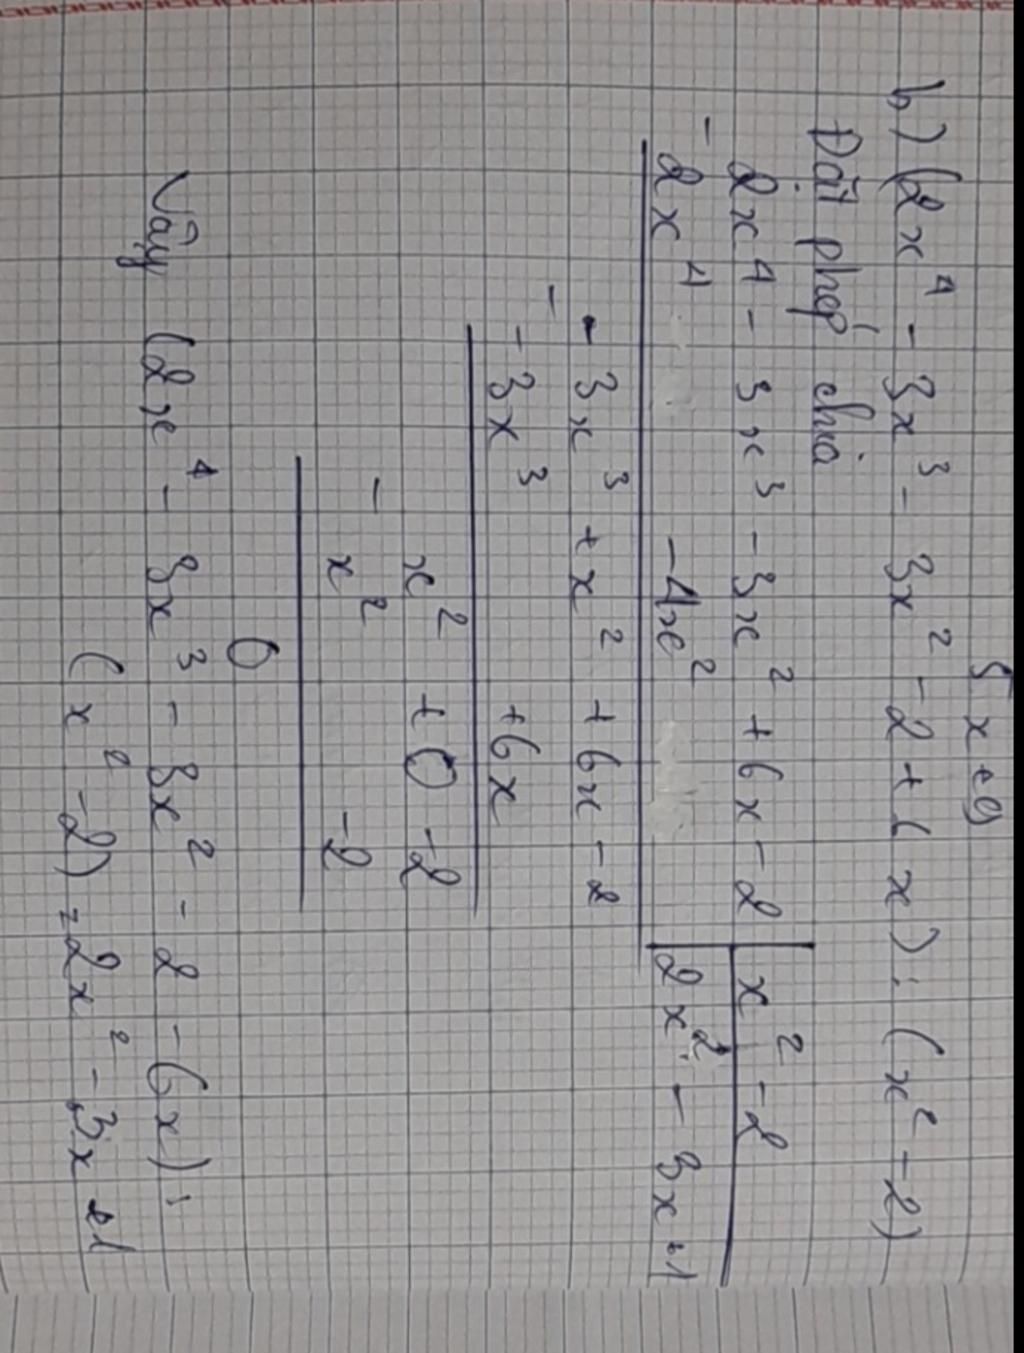 5x+9
b) (2x⁴ - 3x³ - 3x² - 2 + 6x) : (x² - 2)
Đặt phép chia
2x⁴ - 3x³ - 3x² + 6x - 2 | x² - 2
- 2x⁴ - 4x² | 2x² - 3x + 1
- 3x³ + x² + 6x - 2
- - 3x³ + 6x
x² + 0 - 2
- x² - 2
0
Vậy (2x⁴ - 3x³ - 3x² - 2 - 6x) :
(x² - 2) = 2x² - 3x + 1